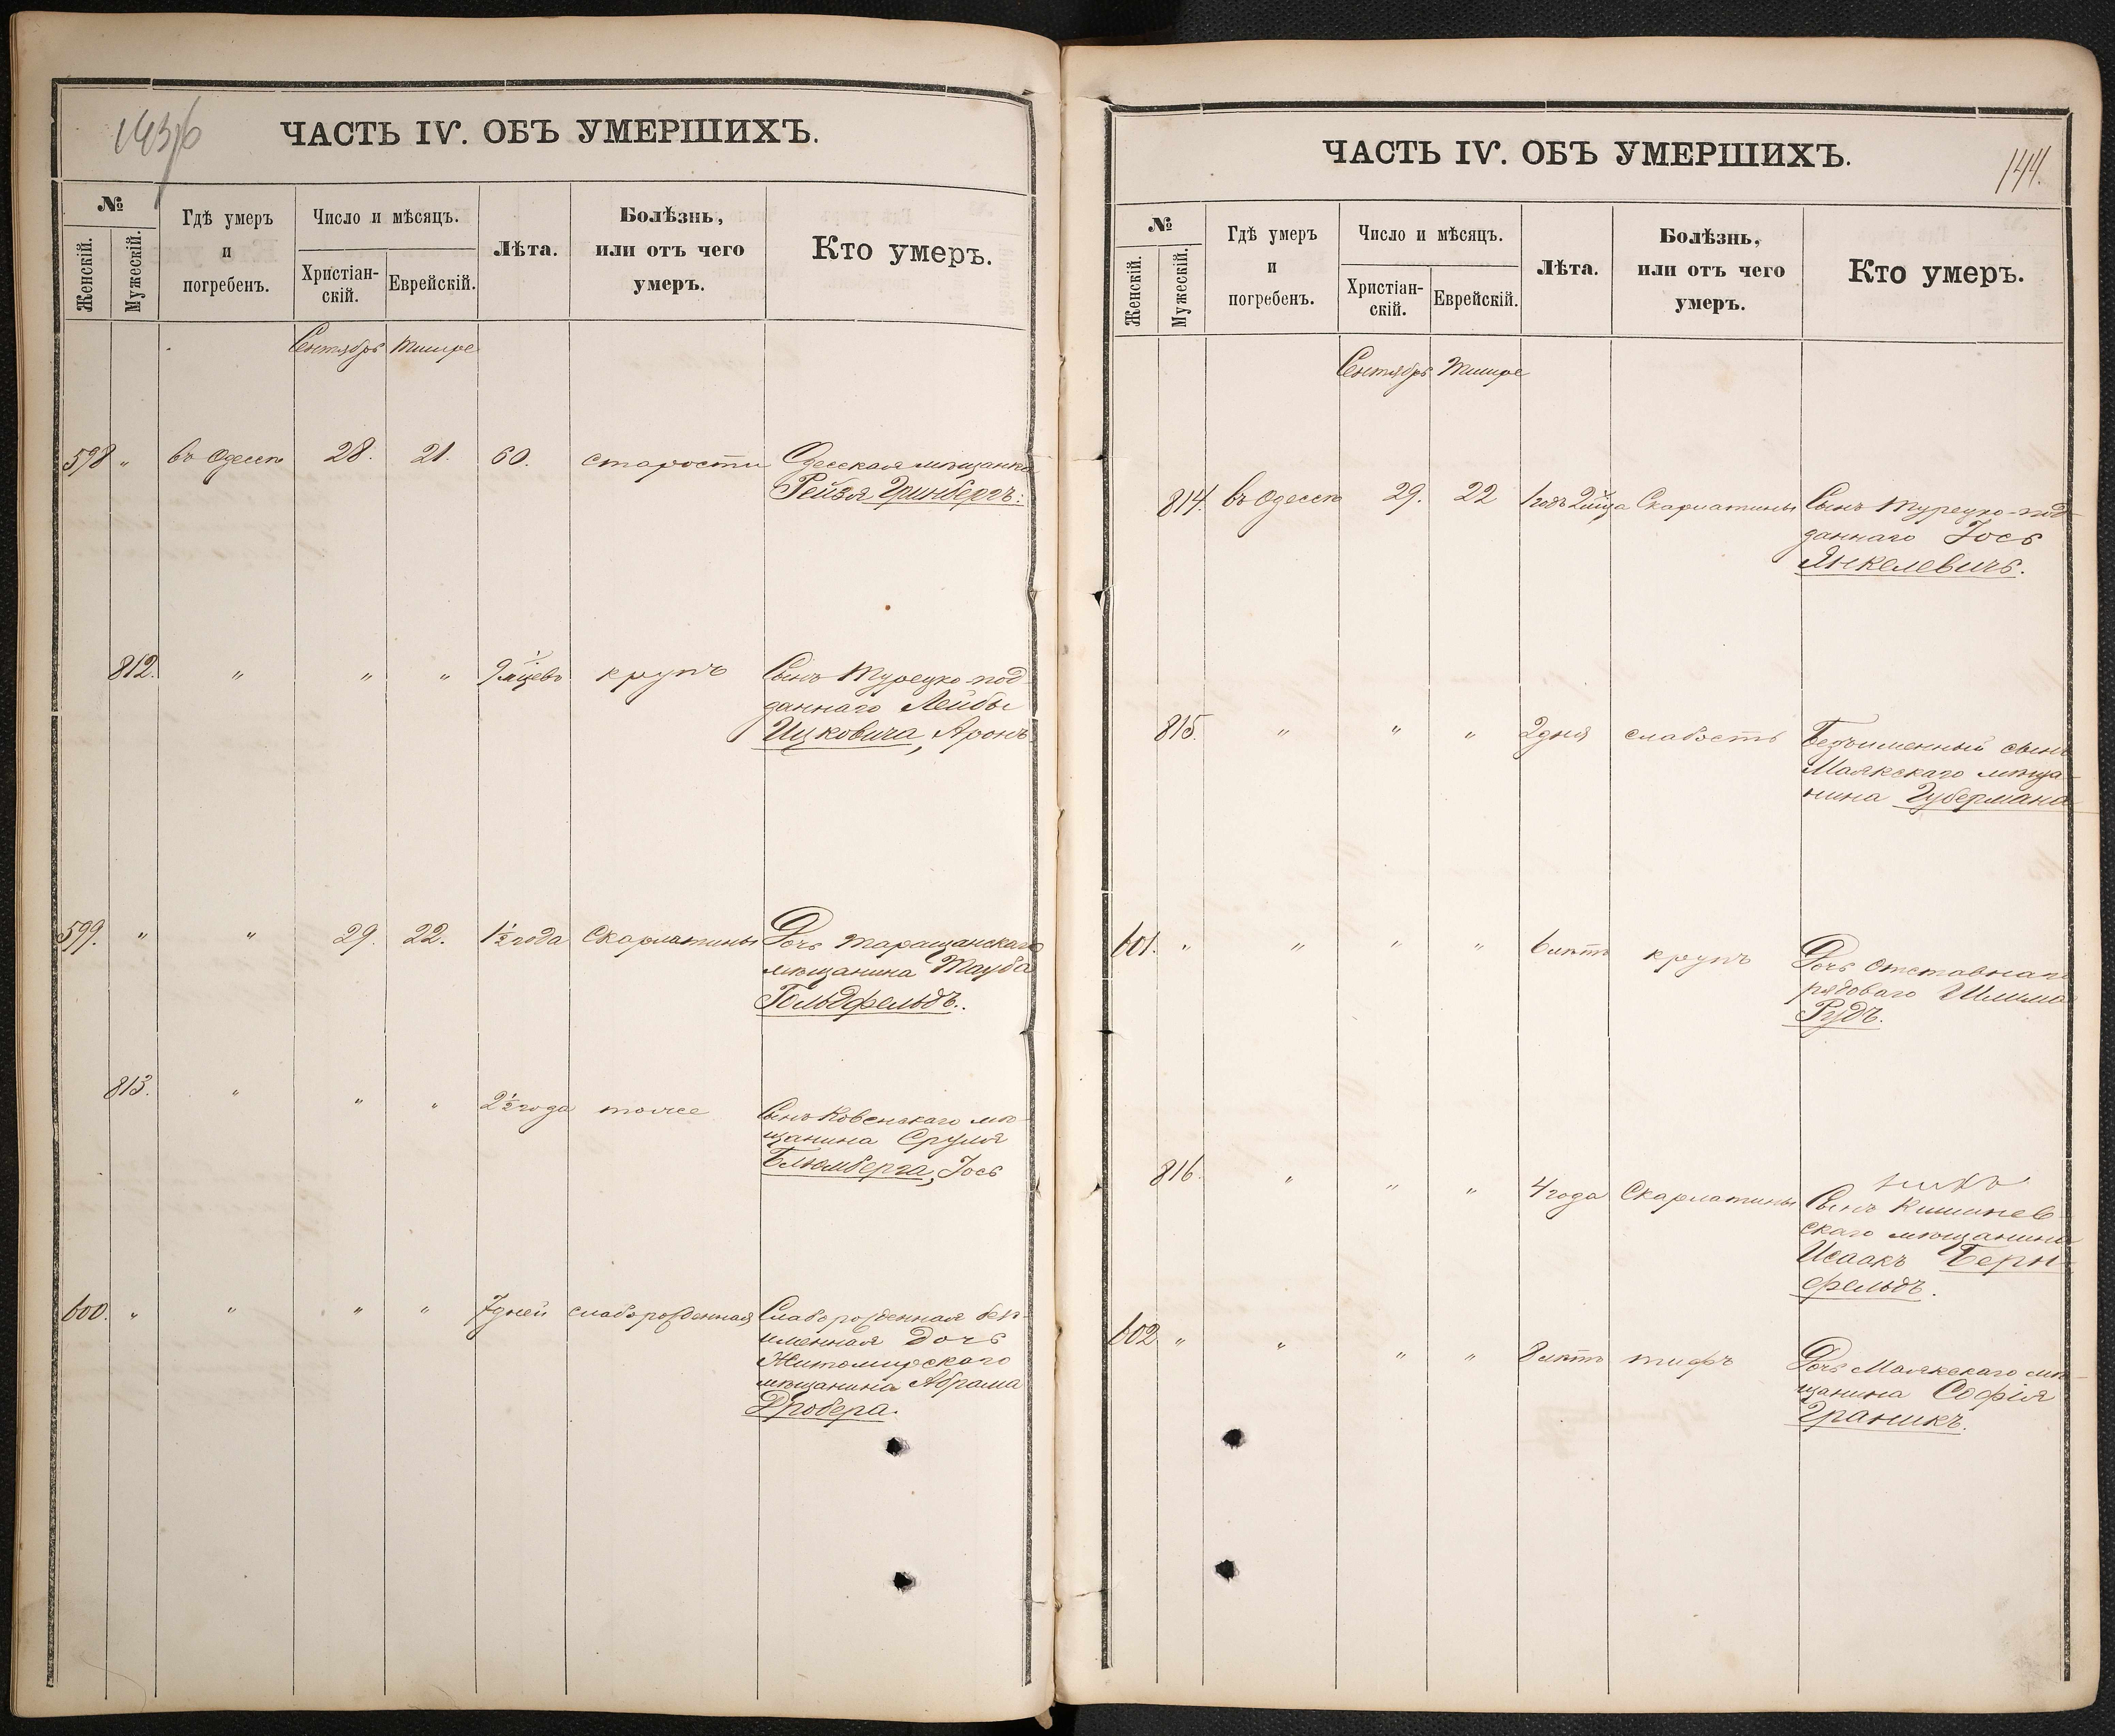 ЧАСТЬ IV. ОБЪ УМЕРШИХЪ.
№
Женскій.
Мужескій.
Гдѣ умеръ
и
погребенъ.
Число и мѣсяцъ.
Христіан-
скій.
Еврейскій.
Лѣта.
Болѣзнь,
или отъ чего
умеръ.
Кто умеръ.
Сентябрь Тишре
598 " въ Одессѣ 28. 21. 60. старости Одесская мѣщанка
Рейзя Гринбергъ.
812. " " " 9 м-цевъ крупъ Сынъ Турецко-под-
даннаго Лейбы
Ицковича, Аронъ
599. " " 29. 22. 1½ года Скарлатины Дочь Таращанскаго
мѣщанина Тауба
Гольдфельдъ.
813. " " " 2½ года тоже Сынъ Ковенскаго мѣ-
щанина Сруля
Блюмберга, Іось
600. " " " " 7 дней слаборожденная Слаборожденная безъ-
именная дочь
Житомирскаго
мѣщанина Абрама
Дробера.
ЧАСТЬ IV. ОБЪ УМЕРШИХЪ.
144.
№
Женскій.
Мужескій.
Гдѣ умеръ
и
погребенъ.
Число и мѣсяцъ.
Христіан-
скій.
Еврейскій.
Лѣта.
Болѣзнь,
или отъ чего
умеръ.
Кто умеръ.
Сентябрь Тишре
814. въ Одессѣ 29. 22 1 годъ 2 м-ца Скарлатины Сынъ Турецко-под-
даннаго Іось
Янкелевичъ.
815. " " " 2 дня слабость Безъименный сынъ
Маякскаго мѣща-
нина Губермана
601. " " " " 6 лѣтъ крупъ Дочь отставнаго
рядоваго Шлима
Рудъ.
816. " " " 4 года Скарлатины Сынъ Кишинев-
скаго мѣщанина
Исаакъ Берн-
фельдъ.
602 " " " " 8 лѣтъ тифъ Дочь Маякскаго мѣ-
щанина Софія
Граникъ.